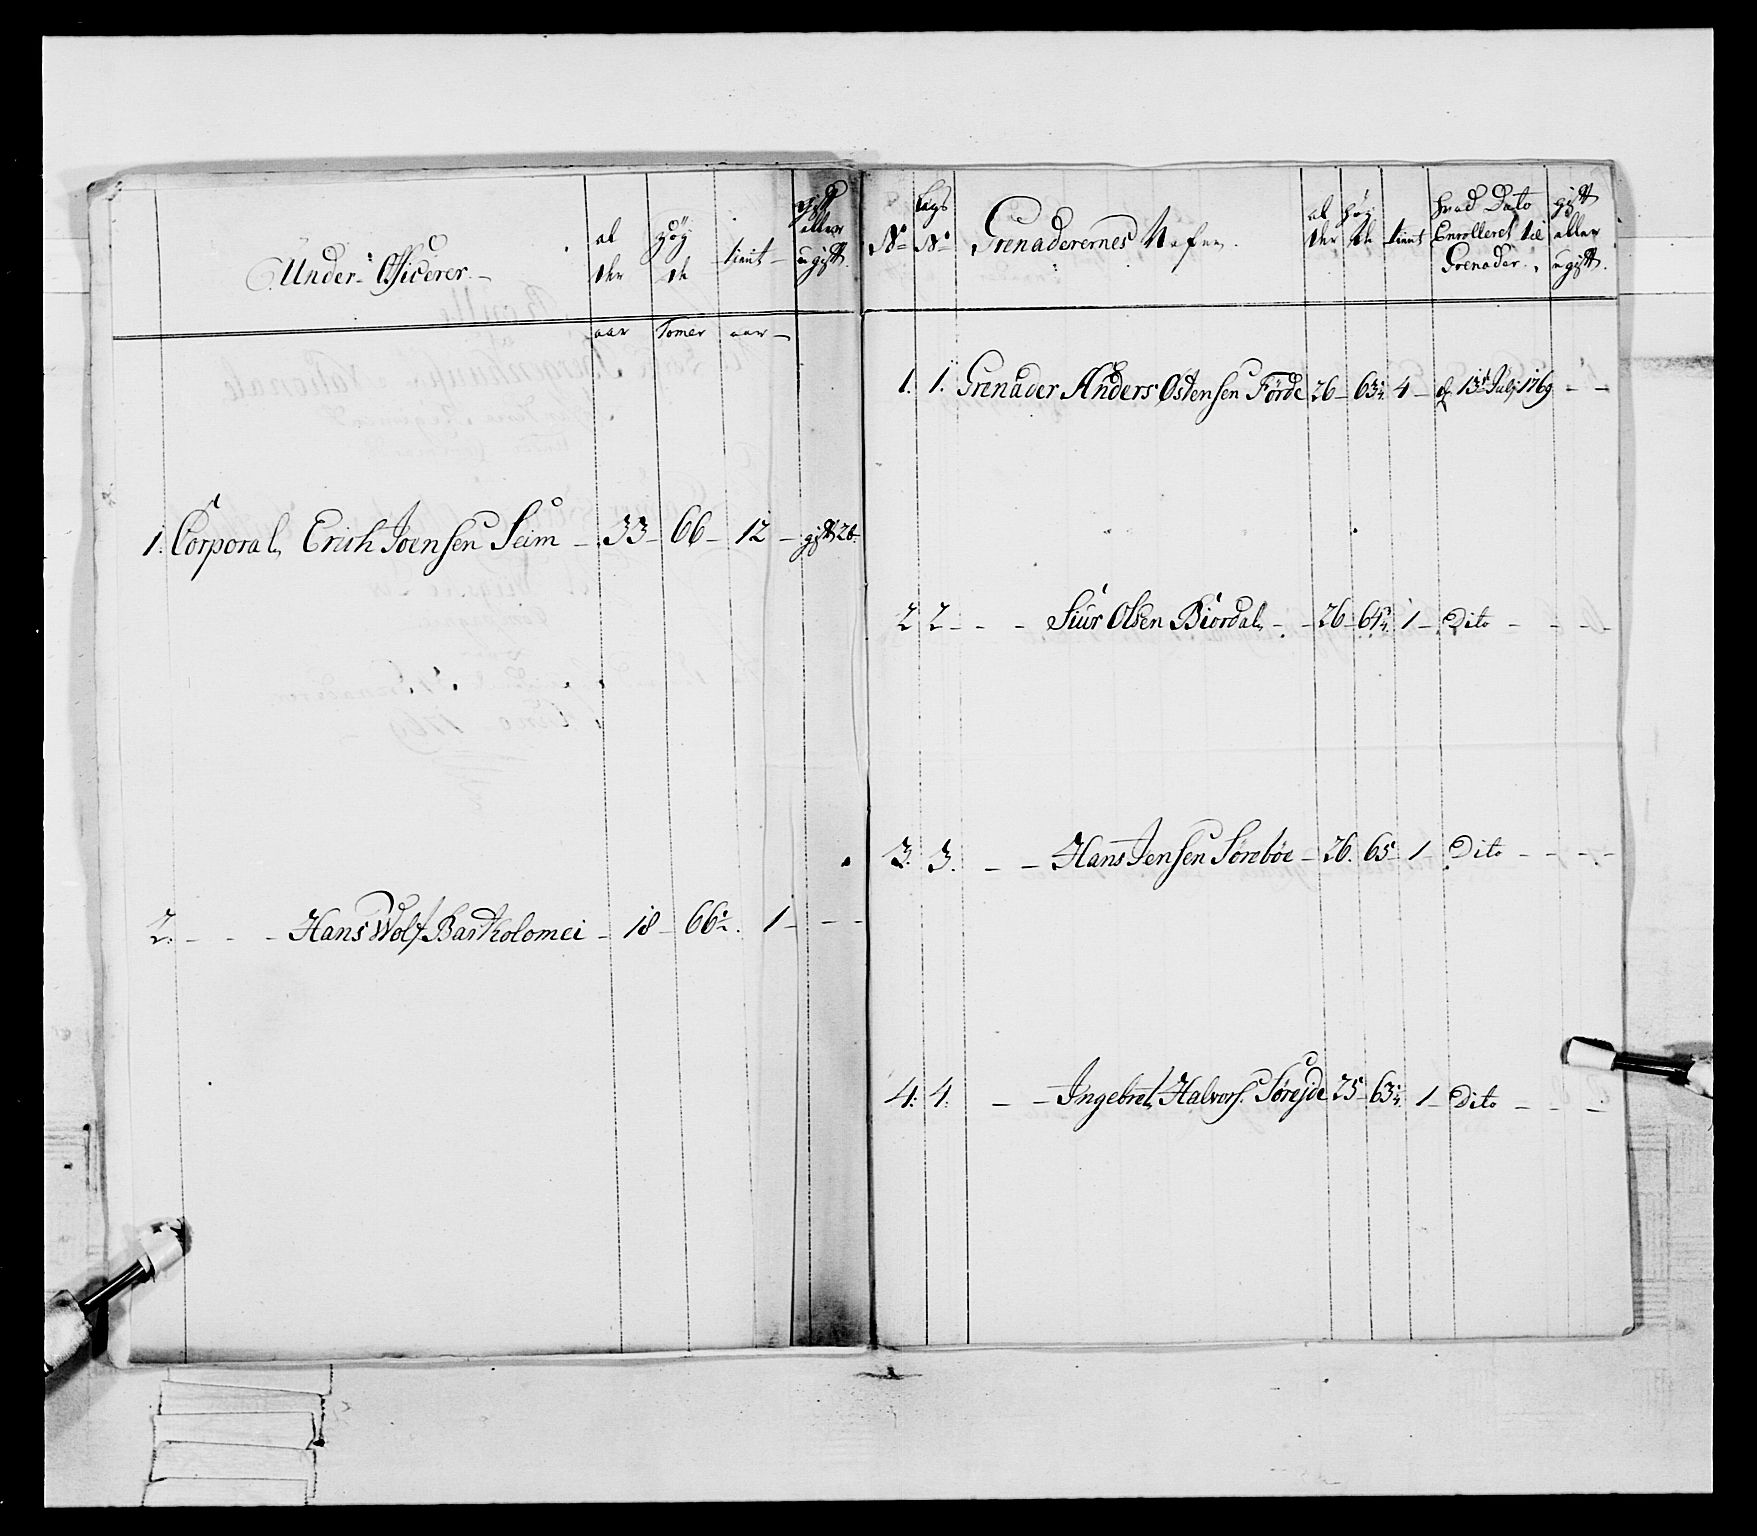 Under Officerer
al der
Høy de
tient
gift eller ugift
aar Tomer aar
1. Corporal Erich Joensen Seim - 33 - 66 - 12 - gift 2b.
2. - - - Hans Wolf Bartholomei - 18 - 66 1/2. 1 - - -
No
Lægs No
Grenaderernes Nafne
al der
høy de
tient
hvad Dato Enrolleret til Grenader
gift eller ugift.
1. 1. Grenader Anders Østensen Förde 26 - 63 3/4 4 - d. 13de Julj 1769 - -
2 2 - - - Siur Olsen Biordal - - 26 - 64 3/4 1 - Dito - - -
3. 3. - - Hans Jensen Sørebøe - 26. 65 - 1 - Dito - - -
4. 4. - - Ingebret Halvors. Sørejde 25 - 63 1/4. 1 - Dito - - -